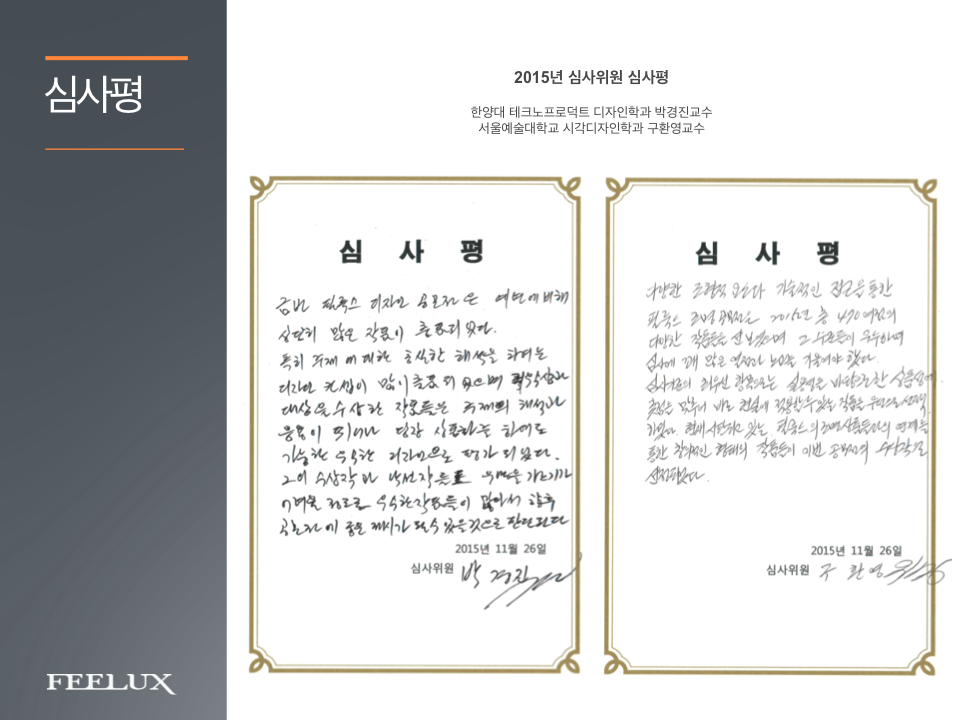 심사평
2015년 심사위원 심사평
한양대 테크노프로덕트 디자인학과 박경진교수
서울예술대학교 시각디자인학과 구환영교수
심 사 평
금번 필룩스 디자인 공모전은 예년에 비해
상당히 많은 작품이 출품되었다.
특히 주제에 대한 충실한 해석을 하려는
디자인 컨셉이 많이 출품되었으며 최우수상과
대상을 수상한 작품들은 주제의 해석과
응용이 뛰어나 당장 상품화를 하여도
가능한 우수한 디자인으로 평가되었다.
그외 수상작과 낙선작들도 우열을 가리기가
어려울 정도로 우수한 작품들이 많아서 향후
공모전에 좋은 제시가 될 수 있을 것으로 판단된다
2015년 11월 26일
심사위원 박경진
심 사 평
다양한 조형적 요소와 기술적인 접근을 통한
필룩스 조명 공모전은 2015년 총 470여점의
다양한 작품들을 선보였으며 그 수준들이 우수하여
심사에 꽤 많은 열정과 노력을 기울여야 했다.
심사기준의 최우선 항목으로는 실용성을 바탕으로한 상품성에
초점을 맞추어 바로 현실에 적용할 수 있는 작품을 우선으로 선정
하였다. 현재 시판되고 있는 필룩스의 조명상품들과의 연계를
통한 창의적인 형태의 작품들이 이번 공모전의 수상작으로
선정되었다.
2015년 11월 26일
심사위원 구환영
FEELUX